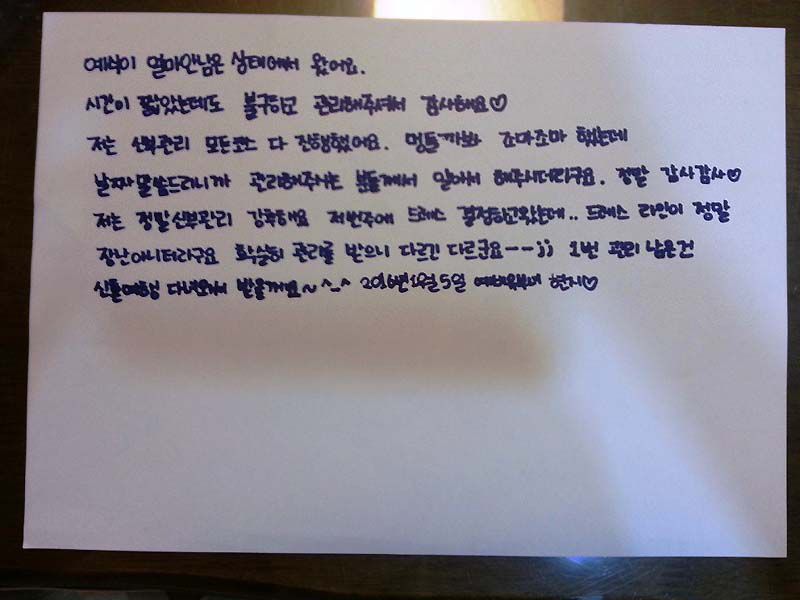 예식이 얼마안남은 상태에서 왔어요.
시간이 짧았는데도 불구하고 관리해주셔서 감사해요♡
저는 신부관리 모든코스 다 진행했어요. 멍들까봐 조마조마 했는데
날짜말씀드리니까 관리해주시는 분들께서 알아서 해주시더라구요. 정말 감사감사♡
저는 정말신부관리 강추해요 저번주에 드레스 결정하고왔는데.. 드레스 라인이 정말
장난아니더라구요 확실히 관리를 받으니 다르긴 다르군요--;; 1번 관리 남은건
신혼여행 다녀와서 받을께요~^_^ 2016년 1월 5일 현지♡